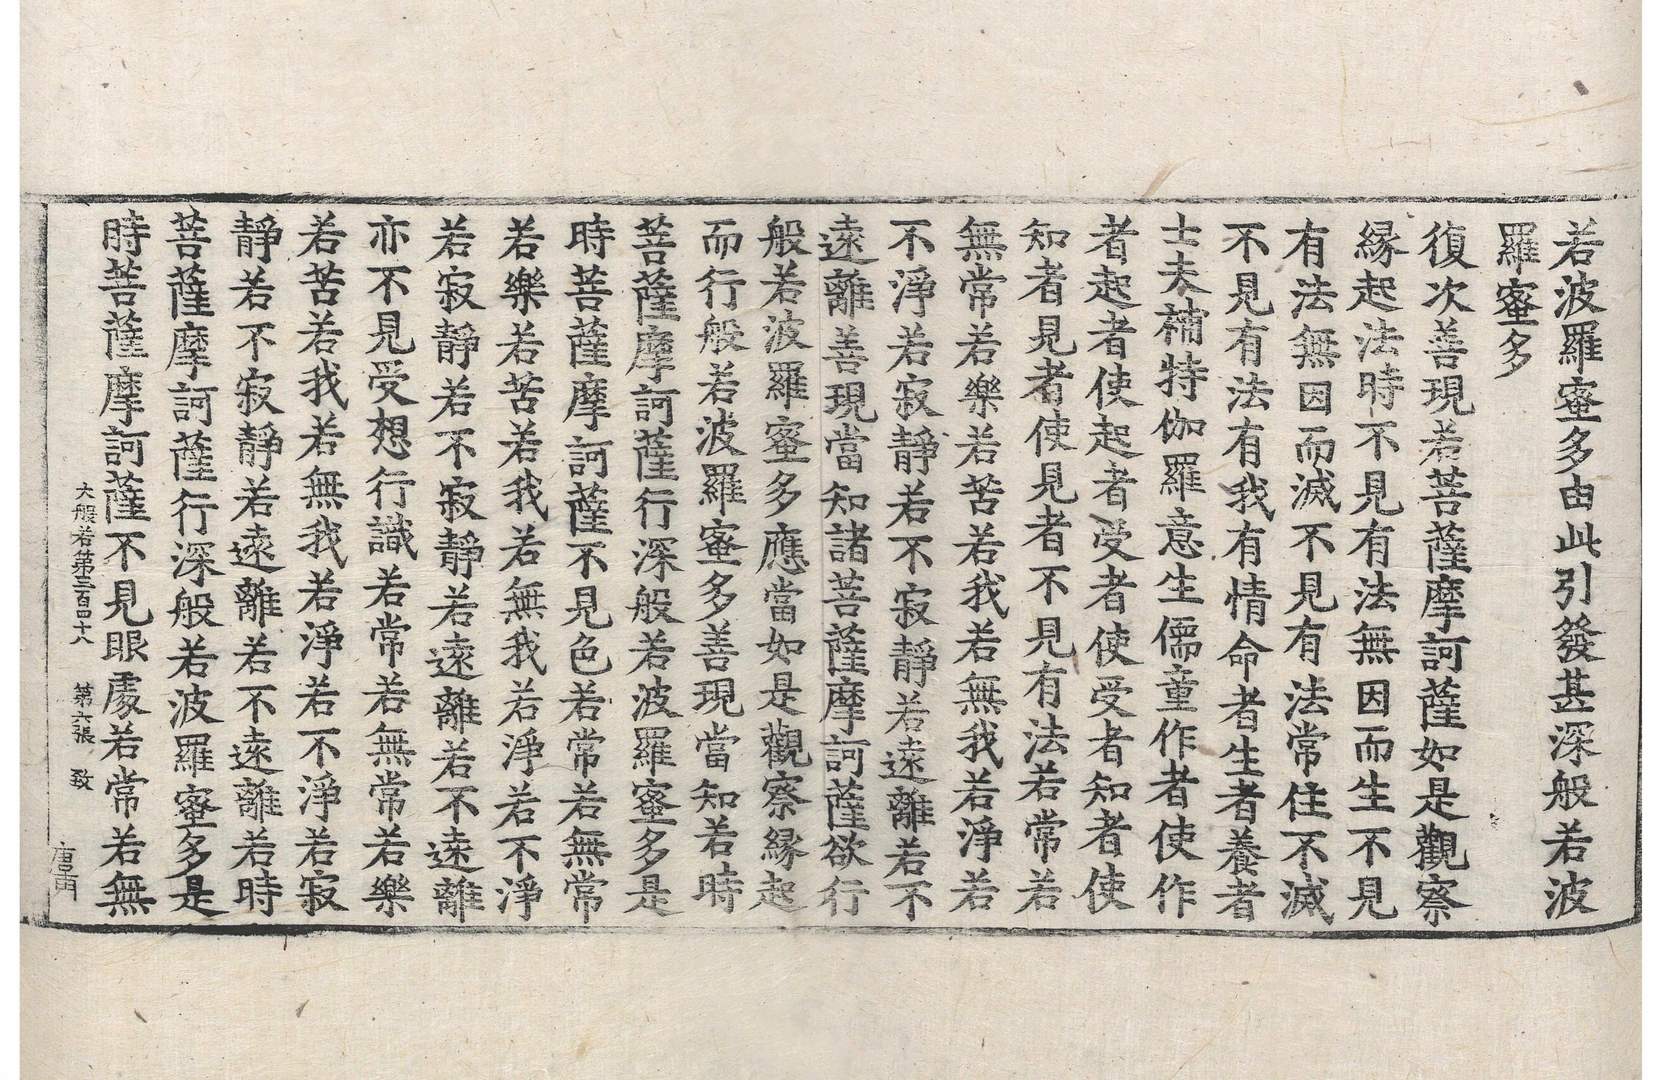 若波羅蜜多由此引發甚深般若波
羅蜜多
復次善現若菩薩摩訶薩如是觀察
緣起法時不見有法無因而生不見
有法無因而滅不見有法常住不滅
不見有法有我有情命者生者養者
士夫補特伽羅意生儒童作者使作
者起者使起者受者使受者知者使
知者見者使見者不見有法若常若
無常若樂若苦若我若無我若淨若
不淨若寂靜若不寂靜若遠離若不
遠離善現當知諸菩薩摩訶薩欲行
般若波羅蜜多應當如是觀察緣起
而行般若波羅蜜多善現當知若時
菩薩摩訶薩行深般若波羅蜜多是
時菩薩摩訶薩不見色若常若無常
若樂若苦若我若無我若淨若不淨
若寂靜若不寂靜若遠離若不遠離
亦不見受想行識若常若無常若樂
若苦若我若無我若淨若不淨若寂
靜若不寂靜若遠離若不遠離若時
菩薩摩訶薩行深般若波羅蜜多是
時菩薩摩訶薩不見眼處若常若無
大般若第三百四十八 第六張 致
唐甫